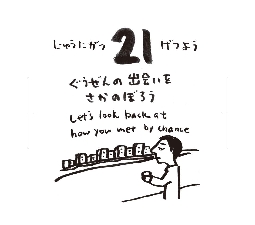 じゅうにがつ 21 げつよう
ぐうぜんの出会いを
さかのぼろう
Let's look back at
how you met by chance